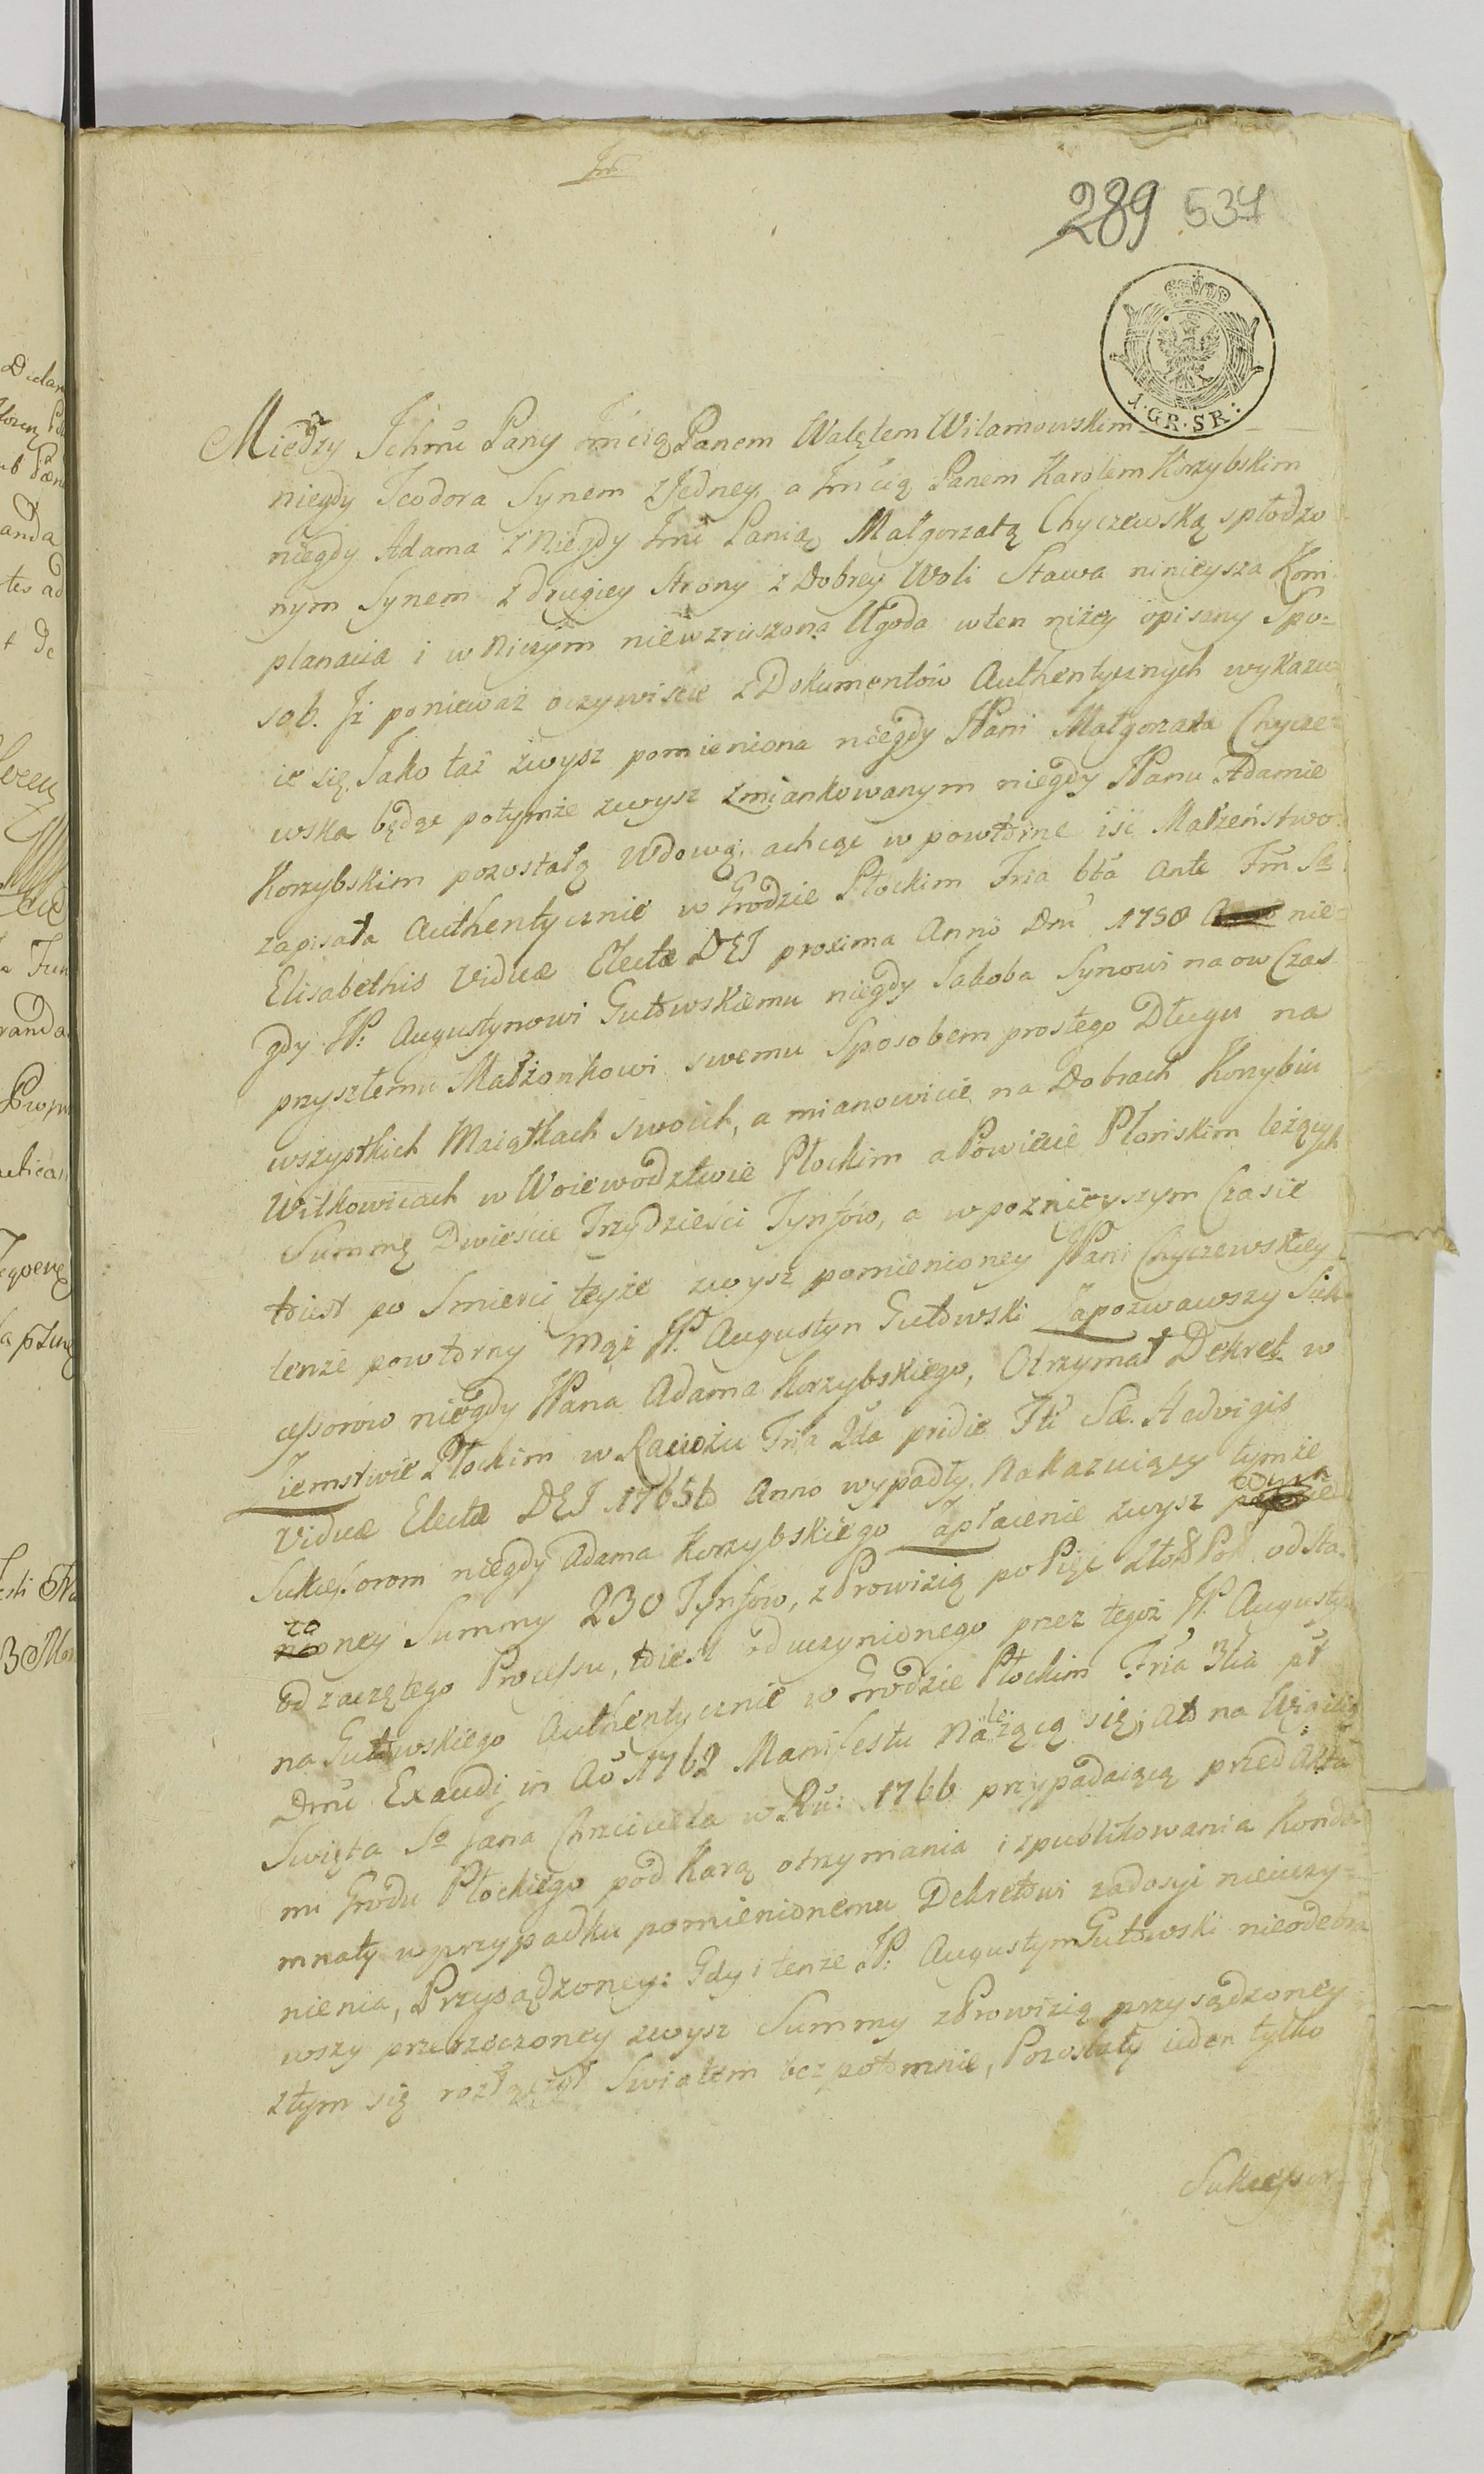 289 537
1·GR·SR:
Między Ichmć Pany Imcią Panem Walętem Wilamowskim
niegdy Teodora Synem z Jedney, a Imcią Panem Karolem Korzybskim
niegdy Adama z Niegdy Imć Panią Małgorzatą Chyczewską spłodzo
nym Synem z drugiey Strony z Dobrey Woli Stawa ninieysza Kom
planacia i w niczym niewzruszona Ugoda w ten niżey opisany Spo=
sob. Iż ponieważ oczywiscie z Dokumentow Authentycznych wykazu=
ie się, Jako taż zwysz pomieniona niegdy JPani Małgorzata Chycze=
wska będąc potymże zwysz zmiankowanym niegdy JPanu Adamie
Korzybskim pozostałą Wdową, a chcąc w powtórne iść Małżeństwo
zapisała Authentycznie w Grodzie Płockim Fria 6ta Ante Fm Sæ
Elisabethis Viduæ Electæ DEI proxima Anno Dni 1758 nie=
gdy JP: Augustynowi Gutowskiemu niegdy Jakoba Synowi na ow Czas
przyszłemu Małżonkowi swemu Sposobem prostego Długu na
wszystkich Maiątkach swoich, a mianowicie na Dobrach Korzybiu
Witkowicach w Woiewodztwie Płockim a Powiecie Płońskim leżących
Summę Dwieście Trzydzieści Tynfow, a w poznieyszym Czasie
to iest po Smierci teyże zwysz pomienioney JPani Chyczewskiey
tenże powtorny Mąż JP. Augustyn Gutowski Zapozwawszy Suk=
cessorow niegdy JPana Adama Korzybskiego, Otrzymał Dekret w
Ziemstwie Płockim w Raciążu Fria 2da pridie Fti Sæ. Hedvigis
Viduæ Electæ DEI 1765to Anno wypadły, Nakazuiący tymże
Sukcessorom niegdy Adama Korzybskiego Zapłacenie zwysz
zoney Summy 230 Tynfow, z Prowizią po Pięć Złot Pol. od Sta.
od zaczętego Processu, to iest od uczynionego przez tegoż JP. Augusty=
na Gutowskiego Authentycznie w Grodzie Płockim Fria 3tia pt
Dnu Exaudi in Ao 1762 Manifestu należącą się; a to na Wigilią
Swięta So Jana Chrzciciela w Ru: 1766 przypadaiącą przed Akta
mi Grodu Płockiego pod Karą otrzymania i spublikowania Konde=
mnaty w przypadku pomienionemu Dekretowi zadosyć nieuczy=
nienia, Przysądzoney: Gdy i tenże JP. Augustyn Gutowski nieodebra
wszy przerzeczoney zwysz Summy z Prowizią przysądzoney
z tym się rozłączył Swiatem bezpotomnie, Pozostały ieden tylko
Sukcessor